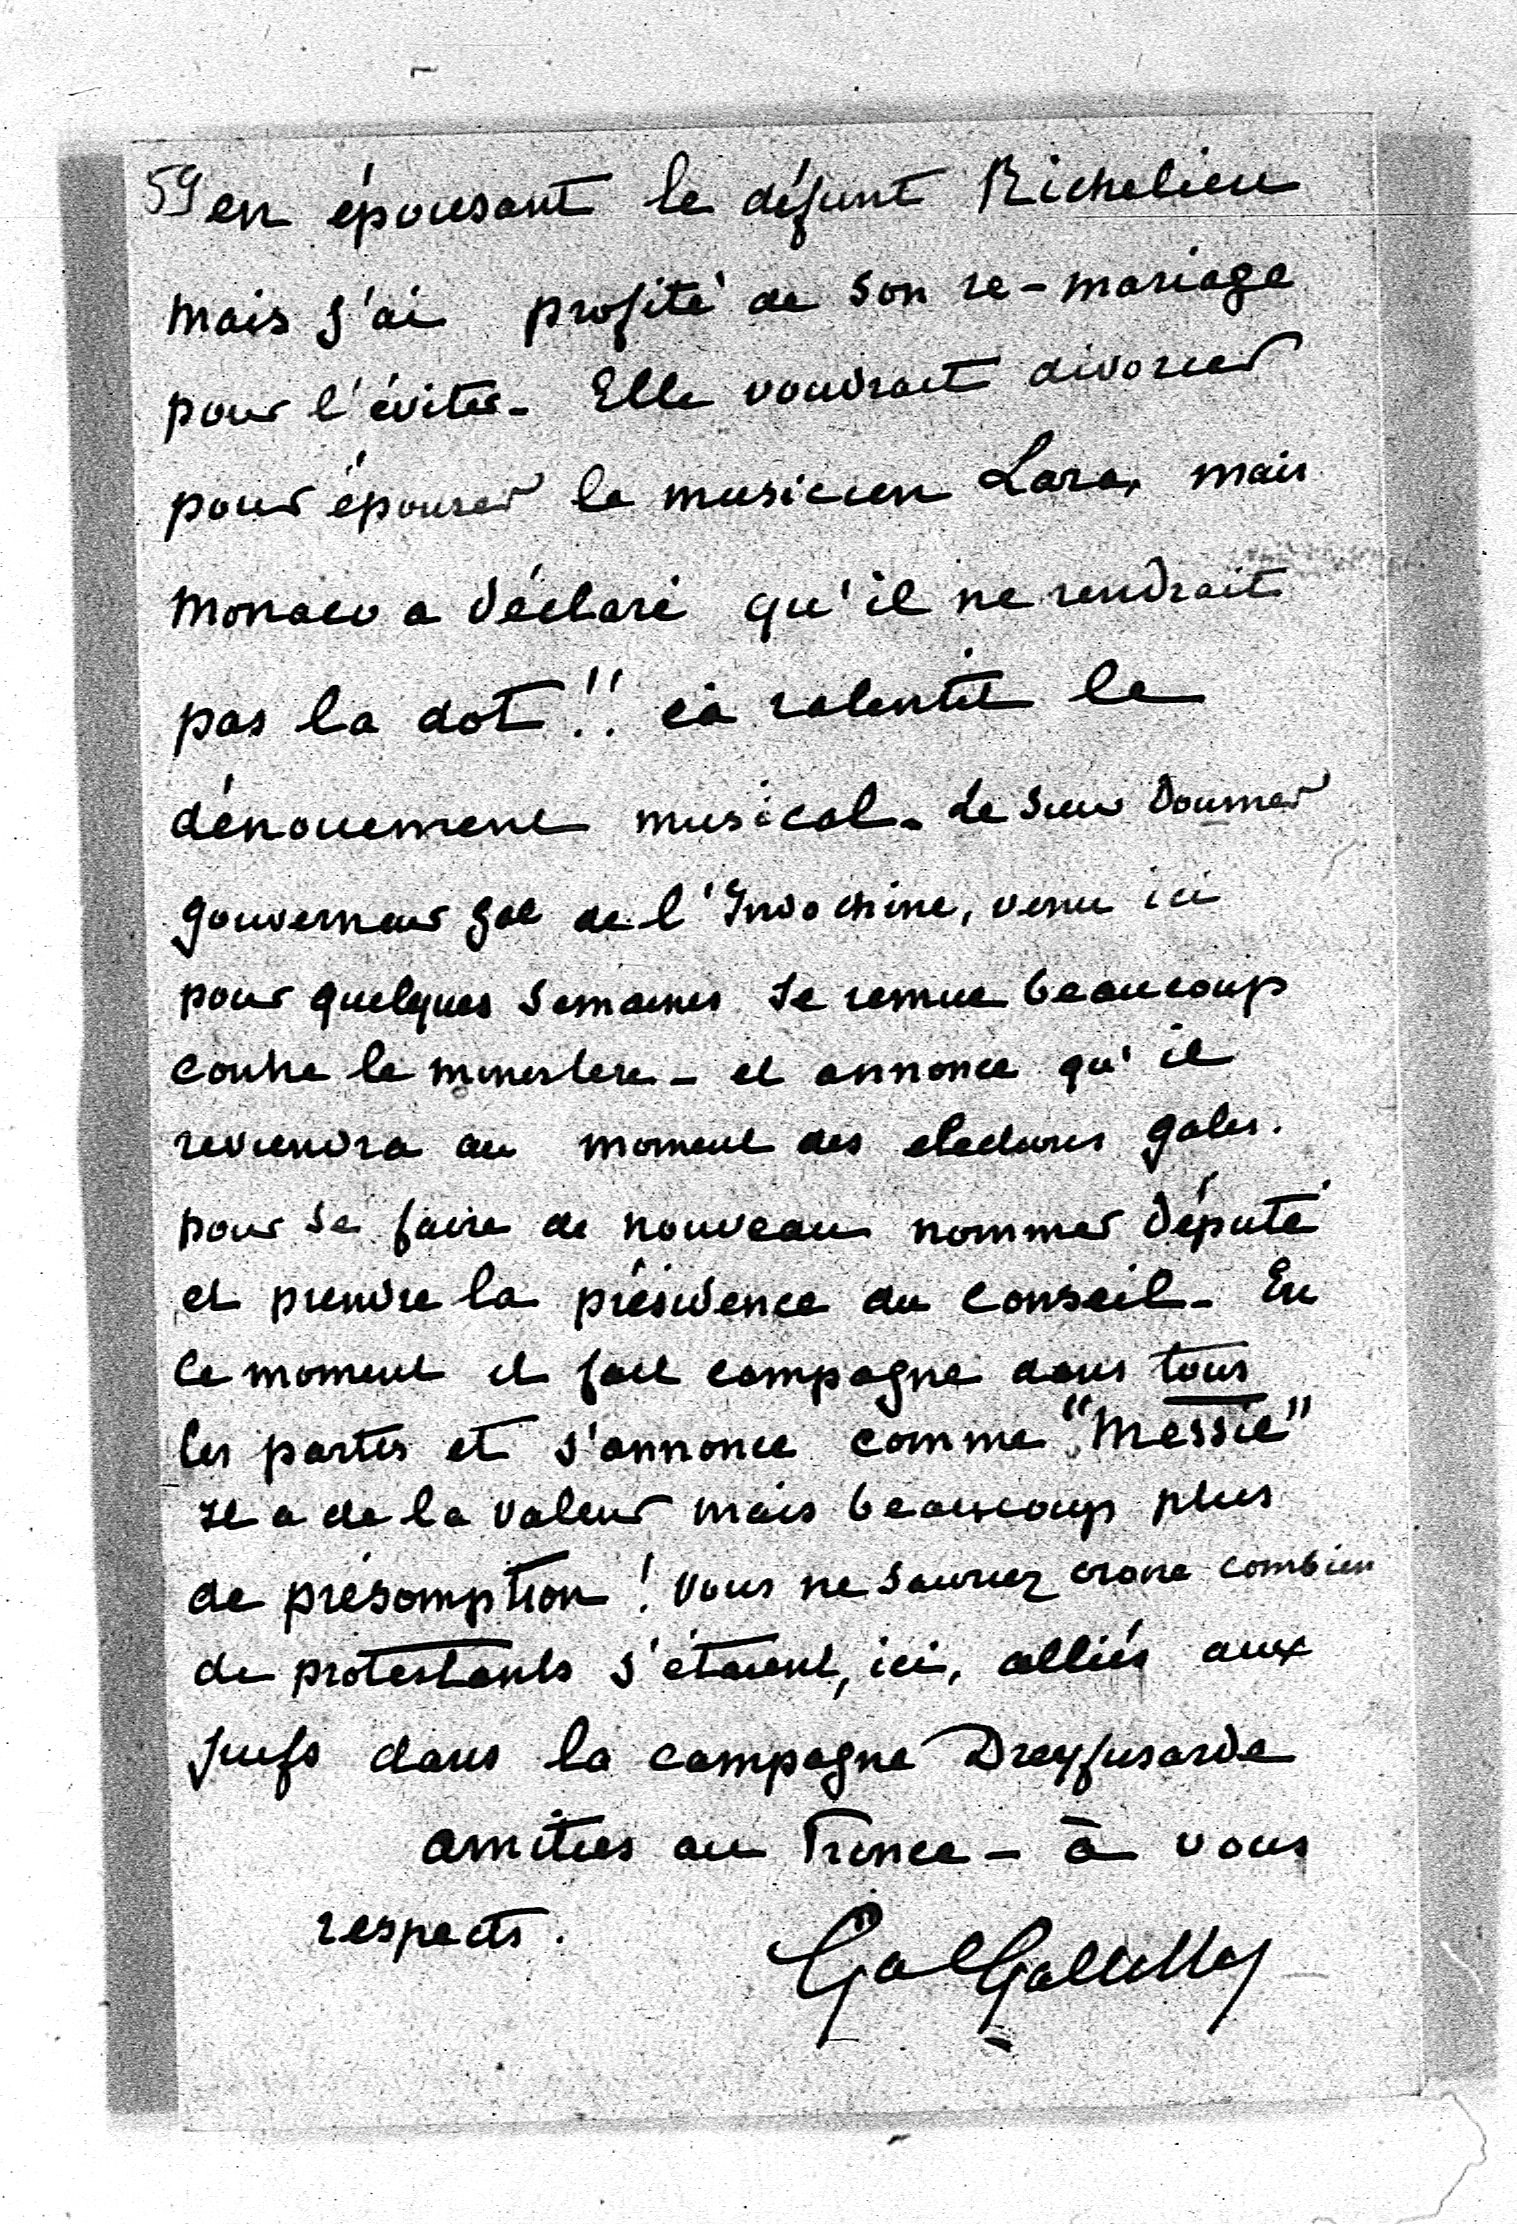 59 en épousant le défunt Richelieu
mais j'ai profité de son re-mariage
pour l'éviter - Elle voudrait divorcer
pour épouser le musicien Lara, mais
Monaco a déclaré qu'il ne rendrait
pas la dot !! ça ralentit le
dénouement musical. Le sieur Doumer
gouverneur gal de l'Indochine, venu ici
pour quelques semaines se remue beaucoup
contre le ministère - et annonce qu'il
reviendra au moment des élections gales.
pour se faire de nouveau nommer député
et prendre la présidence du conseil - En
ce moment il fait campagne dans tous
les partis et s'annonce comme "Messie"
Il a de la valeur mais beaucoup plus
de présomption ! Vous ne sauriez croire combien
de protestants s'étaient, ici, alliés aux
juifs dans la campagne Dreyfusarde
amitiés au Prince - à vous
respects.
Gal Galliffet